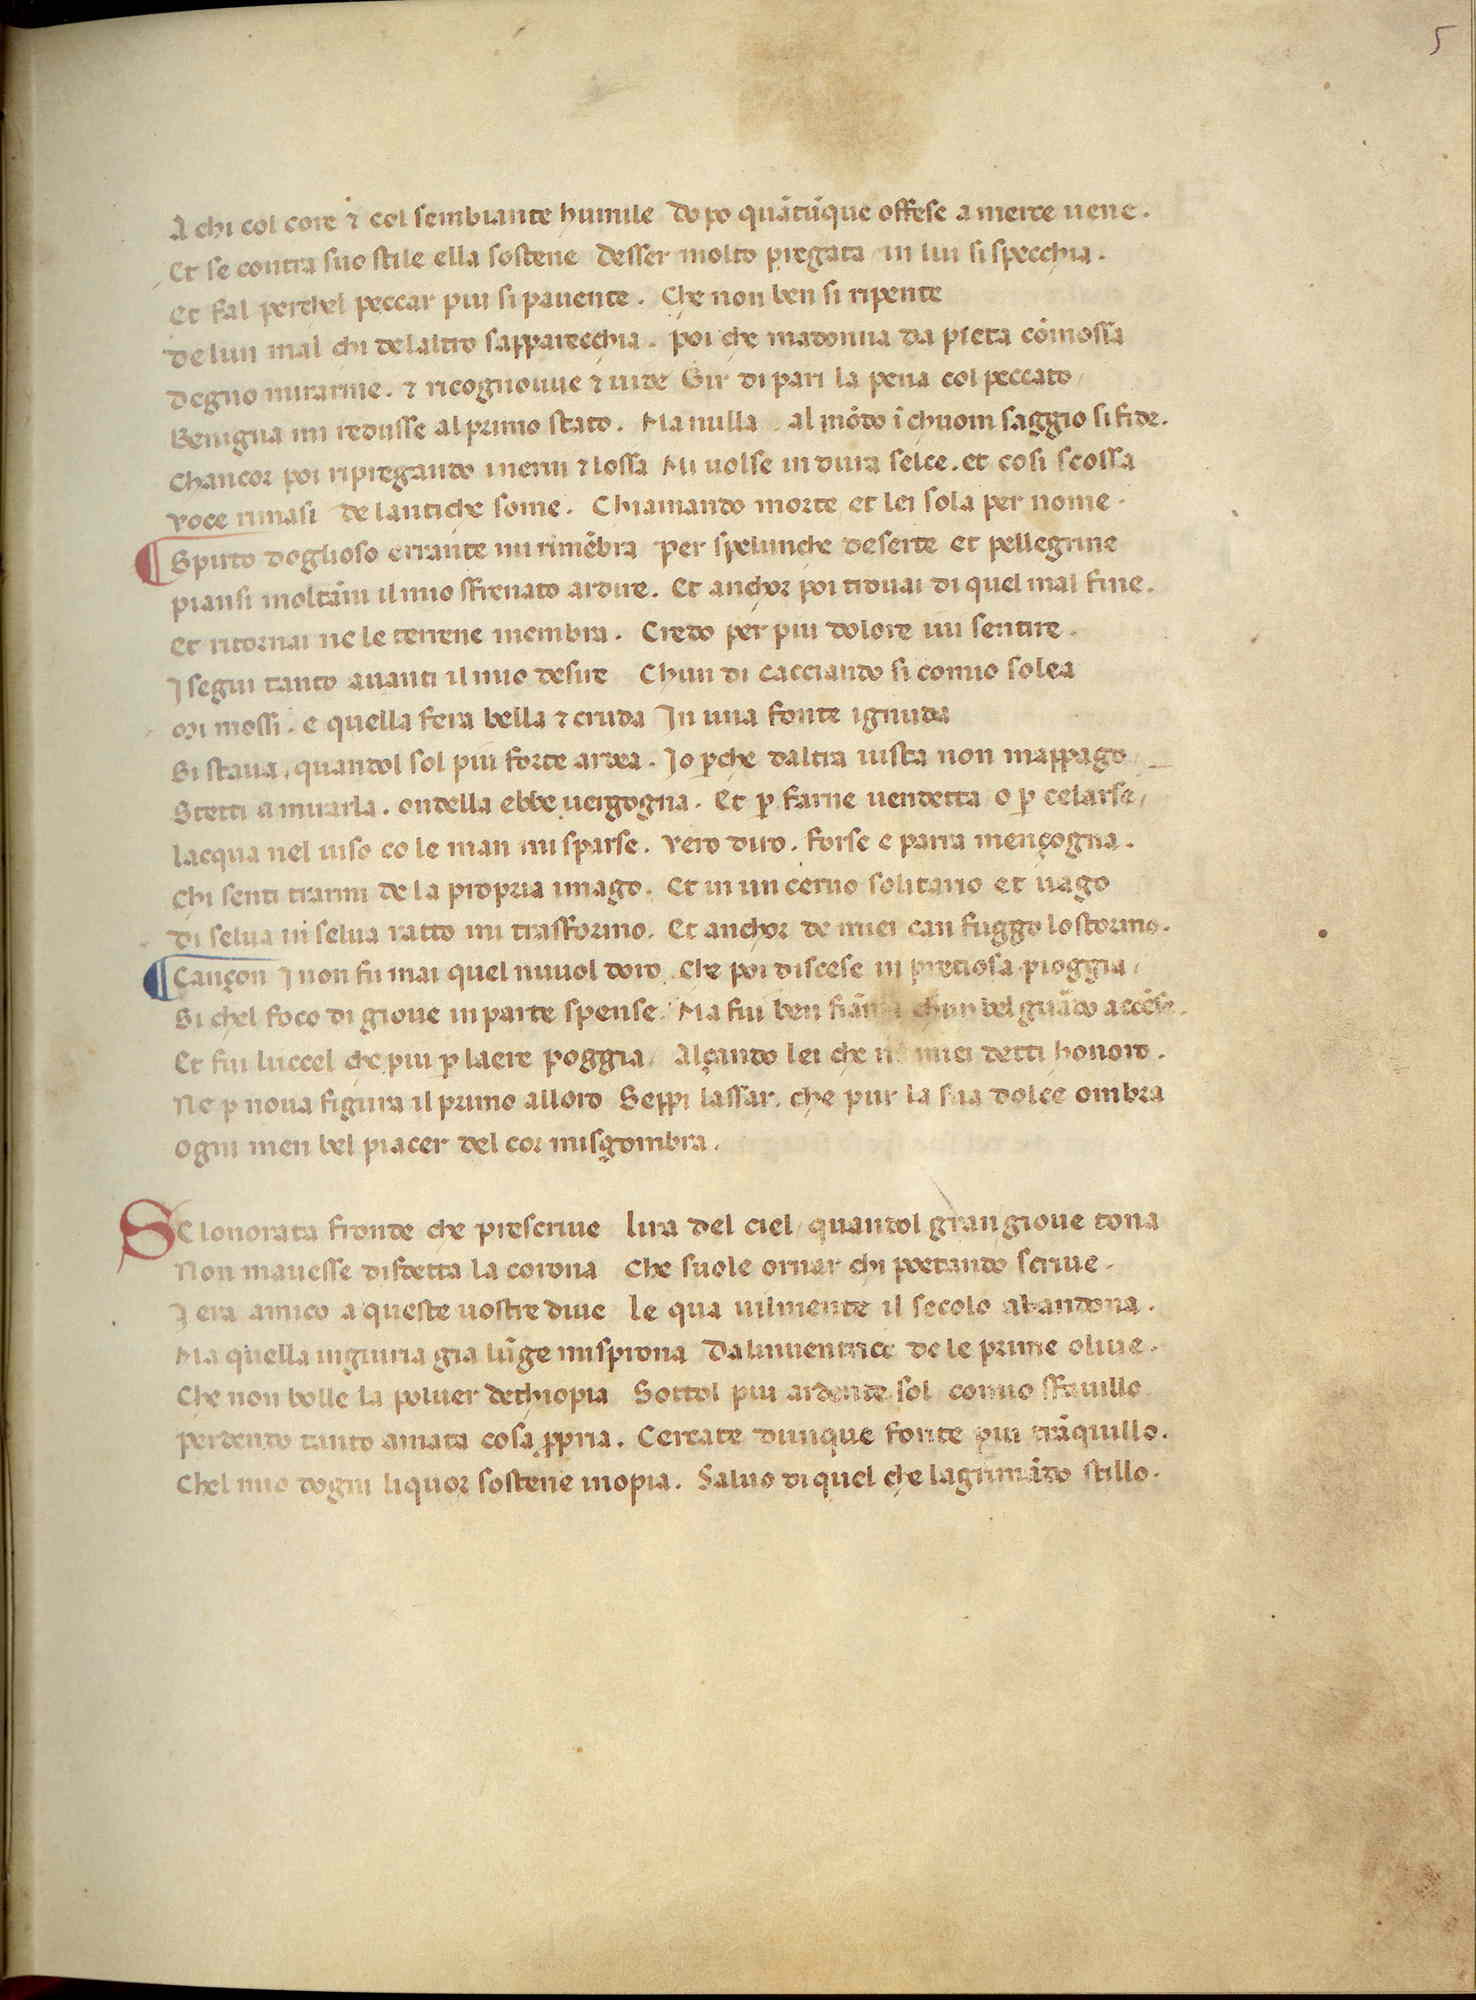 5
A chi col core ⁊ col sembiante humile dopo quātūque offese a merce uene.
Et se contra suo stile ella sostene desser molto pregata in lui si specchia.
Et fal perchel peccar piu si pauente. Che non ben si ripente
de lun mal chi delaltro sapparecchia. poi che madonna da pieta cōmossa
degno mirarme. ⁊ ricognoue ⁊ uide Gir di pari la pena col peccato
Benigna mi redusse al primo stato. Ma nulla al mōdo ī chuom saggio si fide.
Chancor poi ripregando inerui ⁊ lossa Mi uolse in dura selce. et cosi scossa
voce rimasi de lantiche some. Chiamando morte et lei sola per nome.
Spirto doglioso errante mi rimēbra per spelunche deserte et pellegrine
piansi moltāni il mio sfrenato ardire. Et anchor poi trouai di quel mal fine.
Et ritornai ne le terrene membra. Credo per piu dolore iui sentire.
I segui tanto auanti il mio desire Chun di cacciando si comio solea
Mi mossi. e quella fera bella ⁊ cruda In una fonte ignuda
Si staua, quandol sol piu forte ardea. Io p̱che daltra uista non mappago
Stetti a mirarla. ondella ebbe uergogna. Et p̱ farne uendetta o p̱ celarse,
lacqua nel uiso co le man mi sparse. vero diro. forse e parra mençogna.
Chi senti trarmi de la propria imago. Et in un ceruo solitario et uago
di selua in selua ratto mi trasformo. Et anchor de miei can fuggo lo stormo.
Cançon I non fu mai quel nuuol doro Che poi discese in pretiosa pioggia,
Si chel foco di gioue in parte spense. Ma fui ben fiāma chun bel guādo accēse.
Et fui luccel che piu p̱ laere poggia, Alçando lei che ne miei detti honoro.
Ne p̱ noua figura il primo alloro Seppi lassar. che pur la sua dolce ombra
ogni men bel piacer del cor misgombra.
Se lonorata fronde che prescriue lira del ciel, quandol gran gioue tona
Non mauesse disdetta la corona Che suole ornar chi poetando scriue.
I era amico a queste uostre diue le qua uilmente il secolo abandona.
Ma quella ingiuria gia lūge mi sprona Da linuentrice de le prime oliue.
Che non bolle la poluer dethiopia Sottol piu ardente sol, comio sfauillo
perdendo tanto amata cosa p̱pria. Cercate dunque fonte piu trāquillo.
Chel mio dogni liquor sostene inopia. Saluo di quel che lagrimādo stillo.